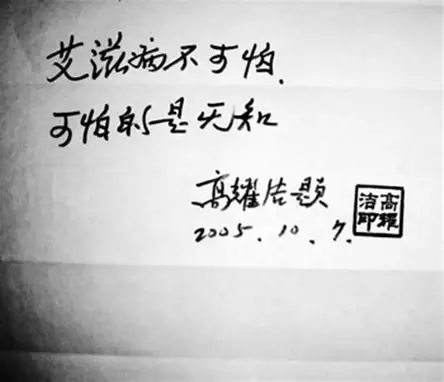 艾滋病不可怕.
可怕的是无知
高耀洁题
2005.10.7.
高耀
洁印